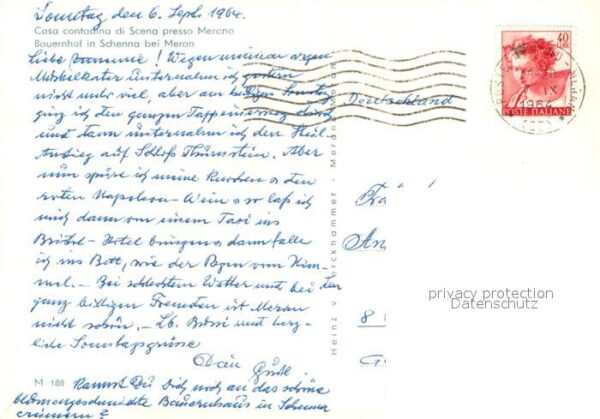 Sonntag, den 6. Sept. 1964.
Casa contadina di Scena presso Merano
Bauernhof in Schenna bei Meran
Liebe ! Wegen meinem argen
Muskelkater unternahm ich gestern
nicht sehr viel, aber am heutigen Sonntag
ging ich den ganzen Tappeinerweg durch
und dann unternahm ich den Steil
Anstieg auf Schloß Thurnstein. Aber
nun spüre ich meine Knochen u den
roten Napoleon-Wein u so laß ich
mich dann von einem Taxi ins
Bristol-Hotel bringen u dann falle
ich ins Bett, wie der Regen vom Him-
mel. - Bei schlechtem Wetter und bei den
ganz billigen Fremden ist Meran
nicht schön. - Lb. Bussi und herz-
liche Sonntagsgrüße
Dein
Kannst Du Dich noch an das schöne
blumengeschmückte Bauernhaus in Schenna
erinnern?
M 188
Heinz v. - Meran
Deutschland
40
LIRE
POSTE ITALIANE
IX
1964
An
8
privacy protection
Datenschutz